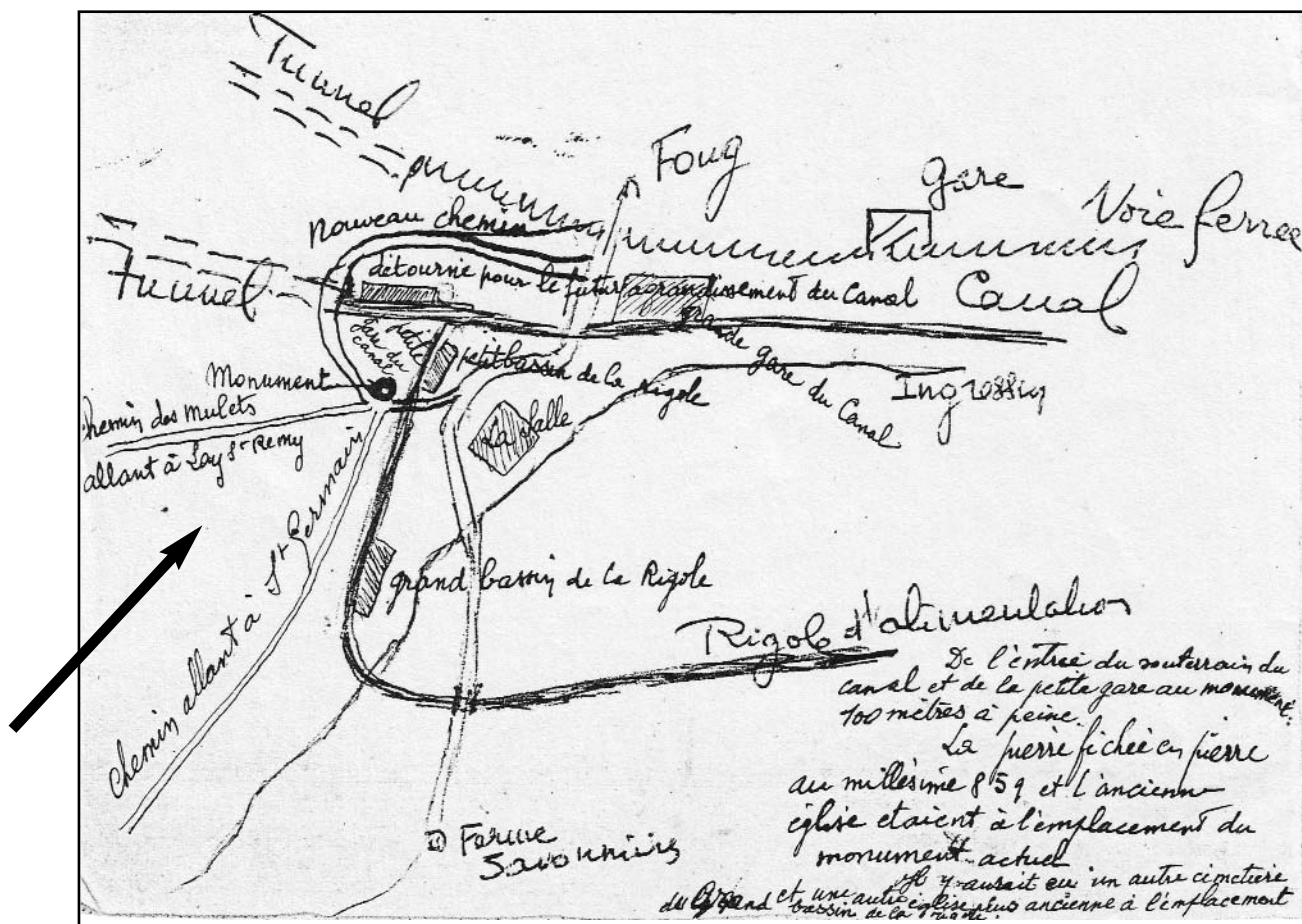 Tunnel
Foug
Gare
Voie ferree
Nouveau chemin
Tunnel
détourné pour le futur agrandissement du Canal
Canal
petite
gare du
canal
grande gare du Canal
petit bassin de la Rigole
Monument
Ingressin
chemin des Mulets
allant à Lay St Remy
La Salle
chemin allant à St Germain
grand bassin de la Rigole
Rigole d'alimentation
De l'entrée du souterrain du
canal et de la petite gare au monument:
100 mètres à peine.
La pierre fichée en pierre
au millésime 859 et l'ancienne
église etaient à l'emplacement du
monument actuel
Il y aurait eu un autre cimetière
et une autre église plus ancienne à l'emplacement
du Grand bassin de la Rigole.
Ferme
Savonnières